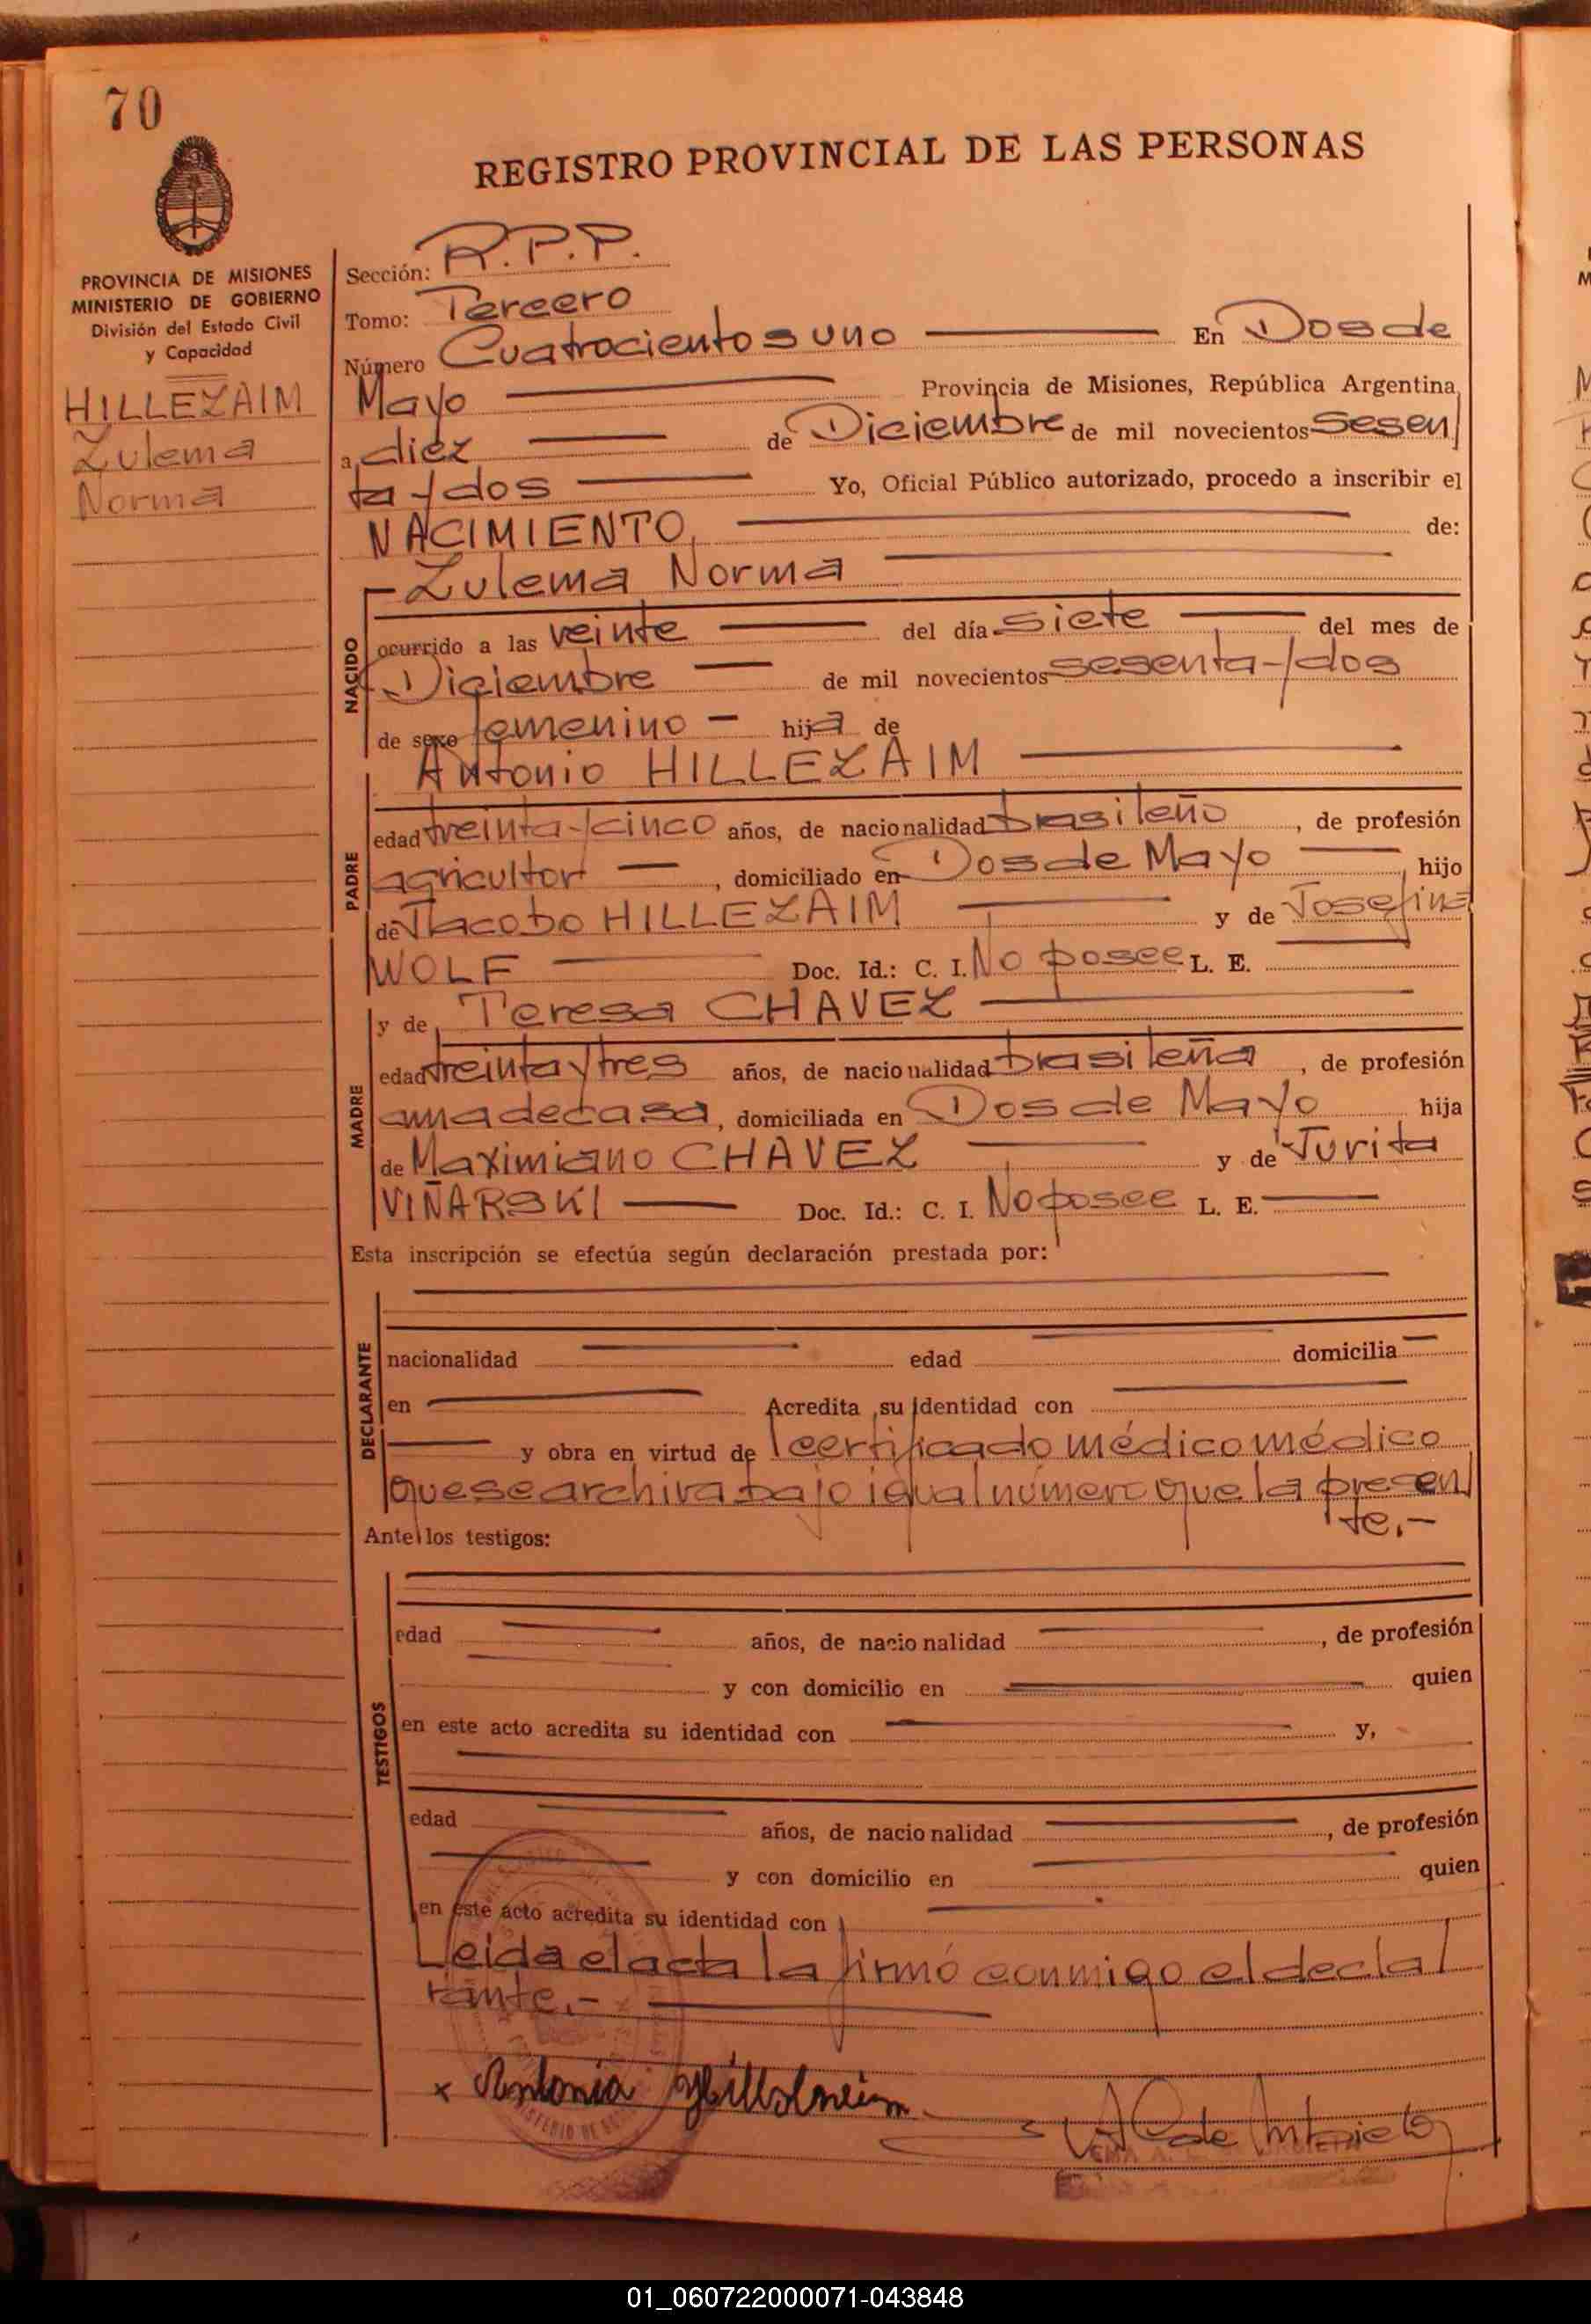 70
REGISTRO PROVINCIAL DE LAS PERSONAS
PROVINCIA DE MISIONES
MINISTERIO DE GOBIERNO
División del Estado Civil
y Capacidad
HILLEZAIM
Zulema
Norma
Sección: R.P.P.
Tomo: Tercero
Número Cuatrocientos uno En Dos de
Mayo Provincia de Misiones, República Argentina,
a diez de Diciembre de mil novecientos sesen
ta y dos Yo, Oficial Público autorizado, procedo a inscribir el
NACIMIENTO, de:
Zulema Norma
NACIDO
ocurrido a las veinte del día siete del mes de
Diciembre de mil novecientos sesenta y dos
de sexo femenino - hija de
Antonio HILLEZAIM
PADRE
edad treinta y cinco años, de nacionalidad brasileño, de profesión
agricultor, domiciliado en Dos de Mayo, hijo
de Jacobo HILLEZAIM y de Josefina
WOLF Doc. Id.: C. I. No posee L. E.
y de Teresa CHAVEZ
MADRE
edad treinta y tres años, de nacionalidad brasileña, de profesión
ama de casa, domiciliada en Dos de Mayo hija
de Maximiano CHAVEZ y de Jurita
VIÑARSKI Doc. Id.: C. I. No posee L. E.
Esta inscripción se efectúa según declaración prestada por:
DECLARANTE
nacionalidad edad domicilia
en Acredita su identidad con
y obra en virtud de certificado médico médico
que se archiva bajo igual número que la presen
te.-
Ante los testigos:
TESTIGOS
edad años, de nacionalidad, de profesión
y con domicilio en quien
en este acto acredita su identidad con y,
edad años, de nacionalidad, de profesión
y con domicilio en quien
en este acto acredita su identidad con
Leida el acta la firmó conmigo el decla
rante.-
x Antonio
01_060722000071-043848